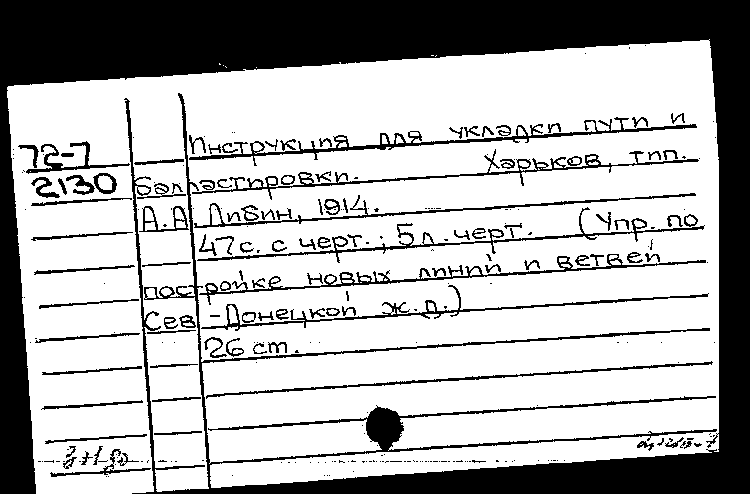 Инструкция для укладки пути и
72-7
2130 балластировки. Харьков, тип.
А.А. Либин, 1914.
47с. с черт.; 5л. черт. (Упр. по
постройке новых линий и ветвей
Сев-Донецкой ж.д.)
26 ст.